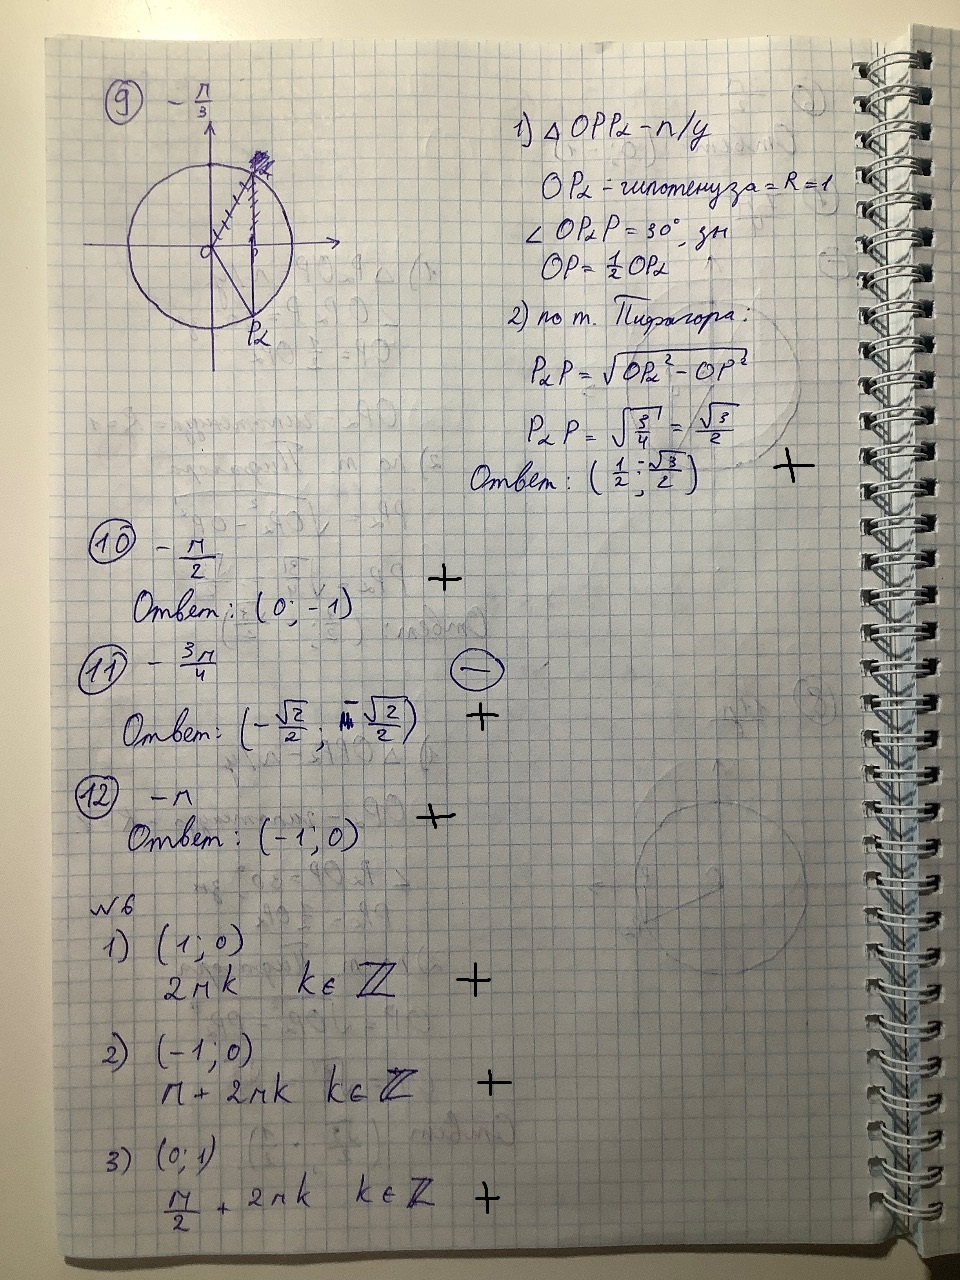 9 - π/3
O
P
Pα
1) △ OPPα - п/у
OPα - гипотенуза = R = 1
∠ OPαP = 30°, зн
OP = 1/2 OPα
2) по т. Пифагора:
PαP = √(OPα² - OP²)
PαP = √(3/4) = √3/2
Ответ: (1/2; -√3/2) +
10 - π/2
+
Ответ: (0; -1)
11 - 3π/4
−
Ответ: (-√2/2; -√2/2) +
12 - π
Ответ: (-1; 0) +
№6
1) (1; 0)
2πk k ∈ ℤ +
2) (-1; 0)
π + 2πk k ∈ ℤ +
3) (0; 1)
π/2 + 2πk k ∈ ℤ +